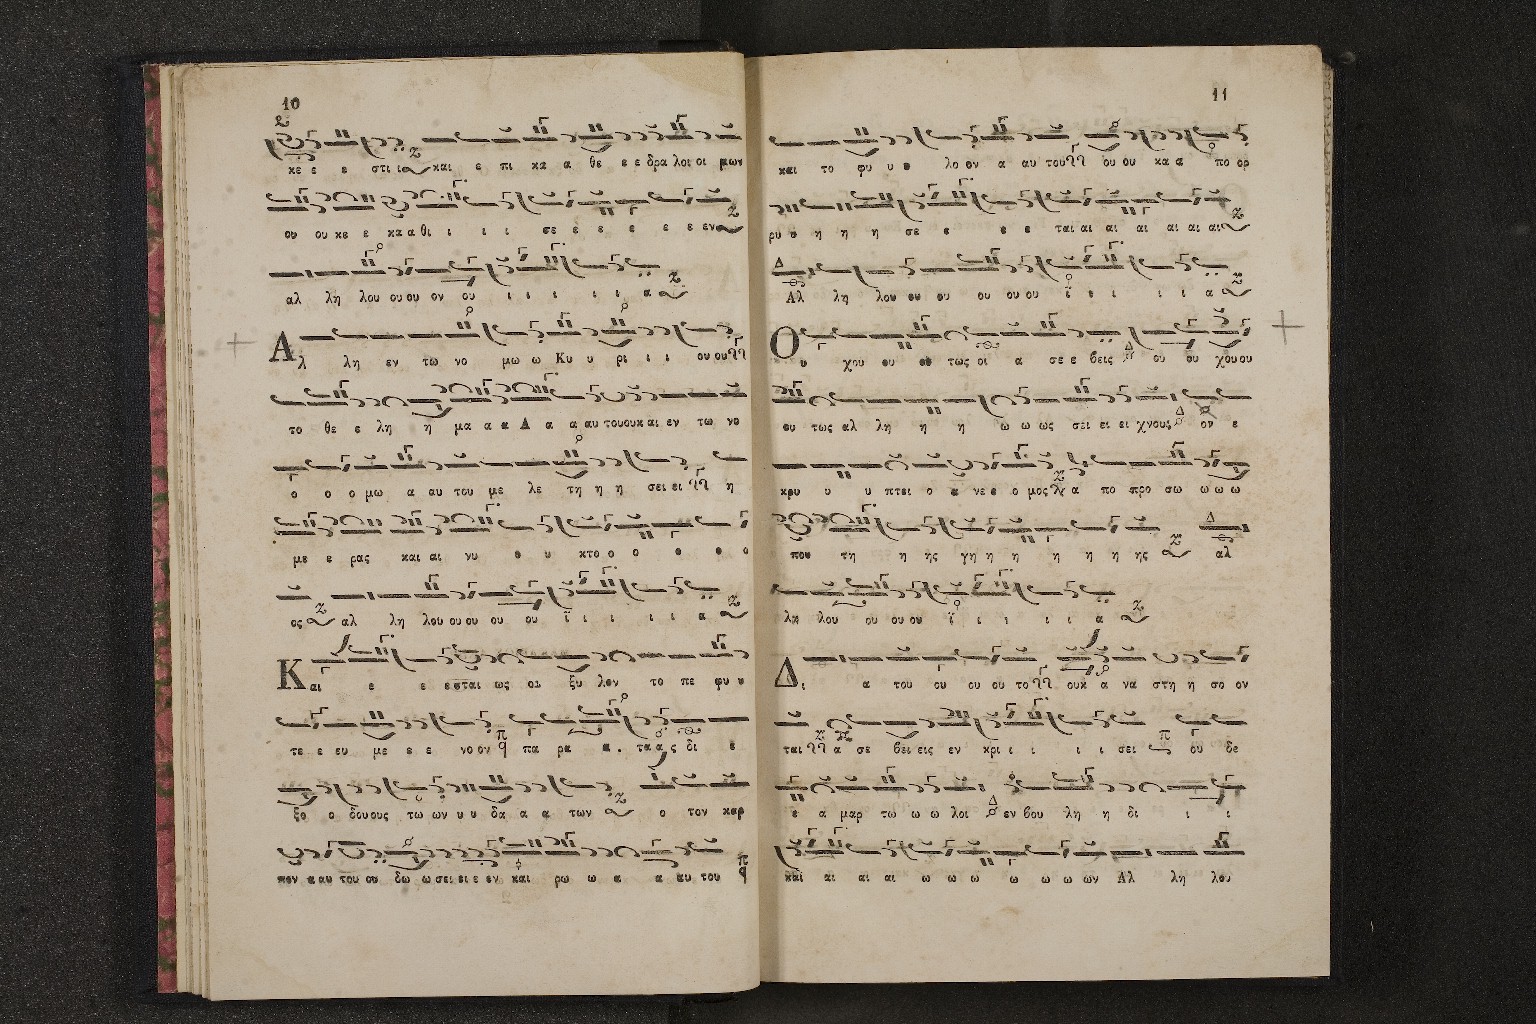 10
κε ε ε στι ι και ε πι κα α θε ε ε δρα λοι οι μων
ου ου κε ε κα α θι ι ι ι σε ε ε ε ε ε ε εν
αλ λη λου ου ου ον ου ι ι ι ι ι α
Αλ λη εν τω νο μω ω Κυ υ ρι ι ι ου ου
το θε ε λη η μα α α Α α α αυ του ου και εν τω νο
ο ο ο μω α αυ του με λε τη η η σει ει η
με ε ρας και αι νυ υ υ κτο ο ο ο ο ο
ος αλ λη λου ου ου ου ου ϊ ι ι ι ι α
Και ε ε εσται ως οι ξυ λον το πε φυ υ
τε ε ευ με ε ε νο ον πα ρα α . τα ας δι ε
ξο ο δους ους τω ων υ υ δα α α των ο τον καρ
πον α αυ του ου δω ω σει ει ε εν και ρω ω α α αυ του
11
και το φυ υ υ λο ον α αυ του ου ου κα α πο ορ
ρυ υ η η η σε ε ε ε ται αι αι αι αι αι αι
Αλ λη λου ου ου ου ου ου ϊ ι ι ι ι α
Ου χου ου ου τως οι α σε ε βεις ου ου χου ου
ου τως αλ λη η η ω ω ως σει ει ει χνους ον ε
κρυ υ υ πτει ο α νε ε ο μος α πο προ σω ω ω ω
που τη η ης γη η η η η η ης αλ
λη λου ου ου ου ϊ ι ι ι ι α
Δι α του ου ου ου το ουκ α να στη η σο ον
ται α σε βει εις εν κρι ι ι ι ι σει ου δε
ε α μαρ τω ω ω λοι εν βου λη η δι ι ι
και αι αι αι ω ω ω ω ω ω ων Αλ λη λου